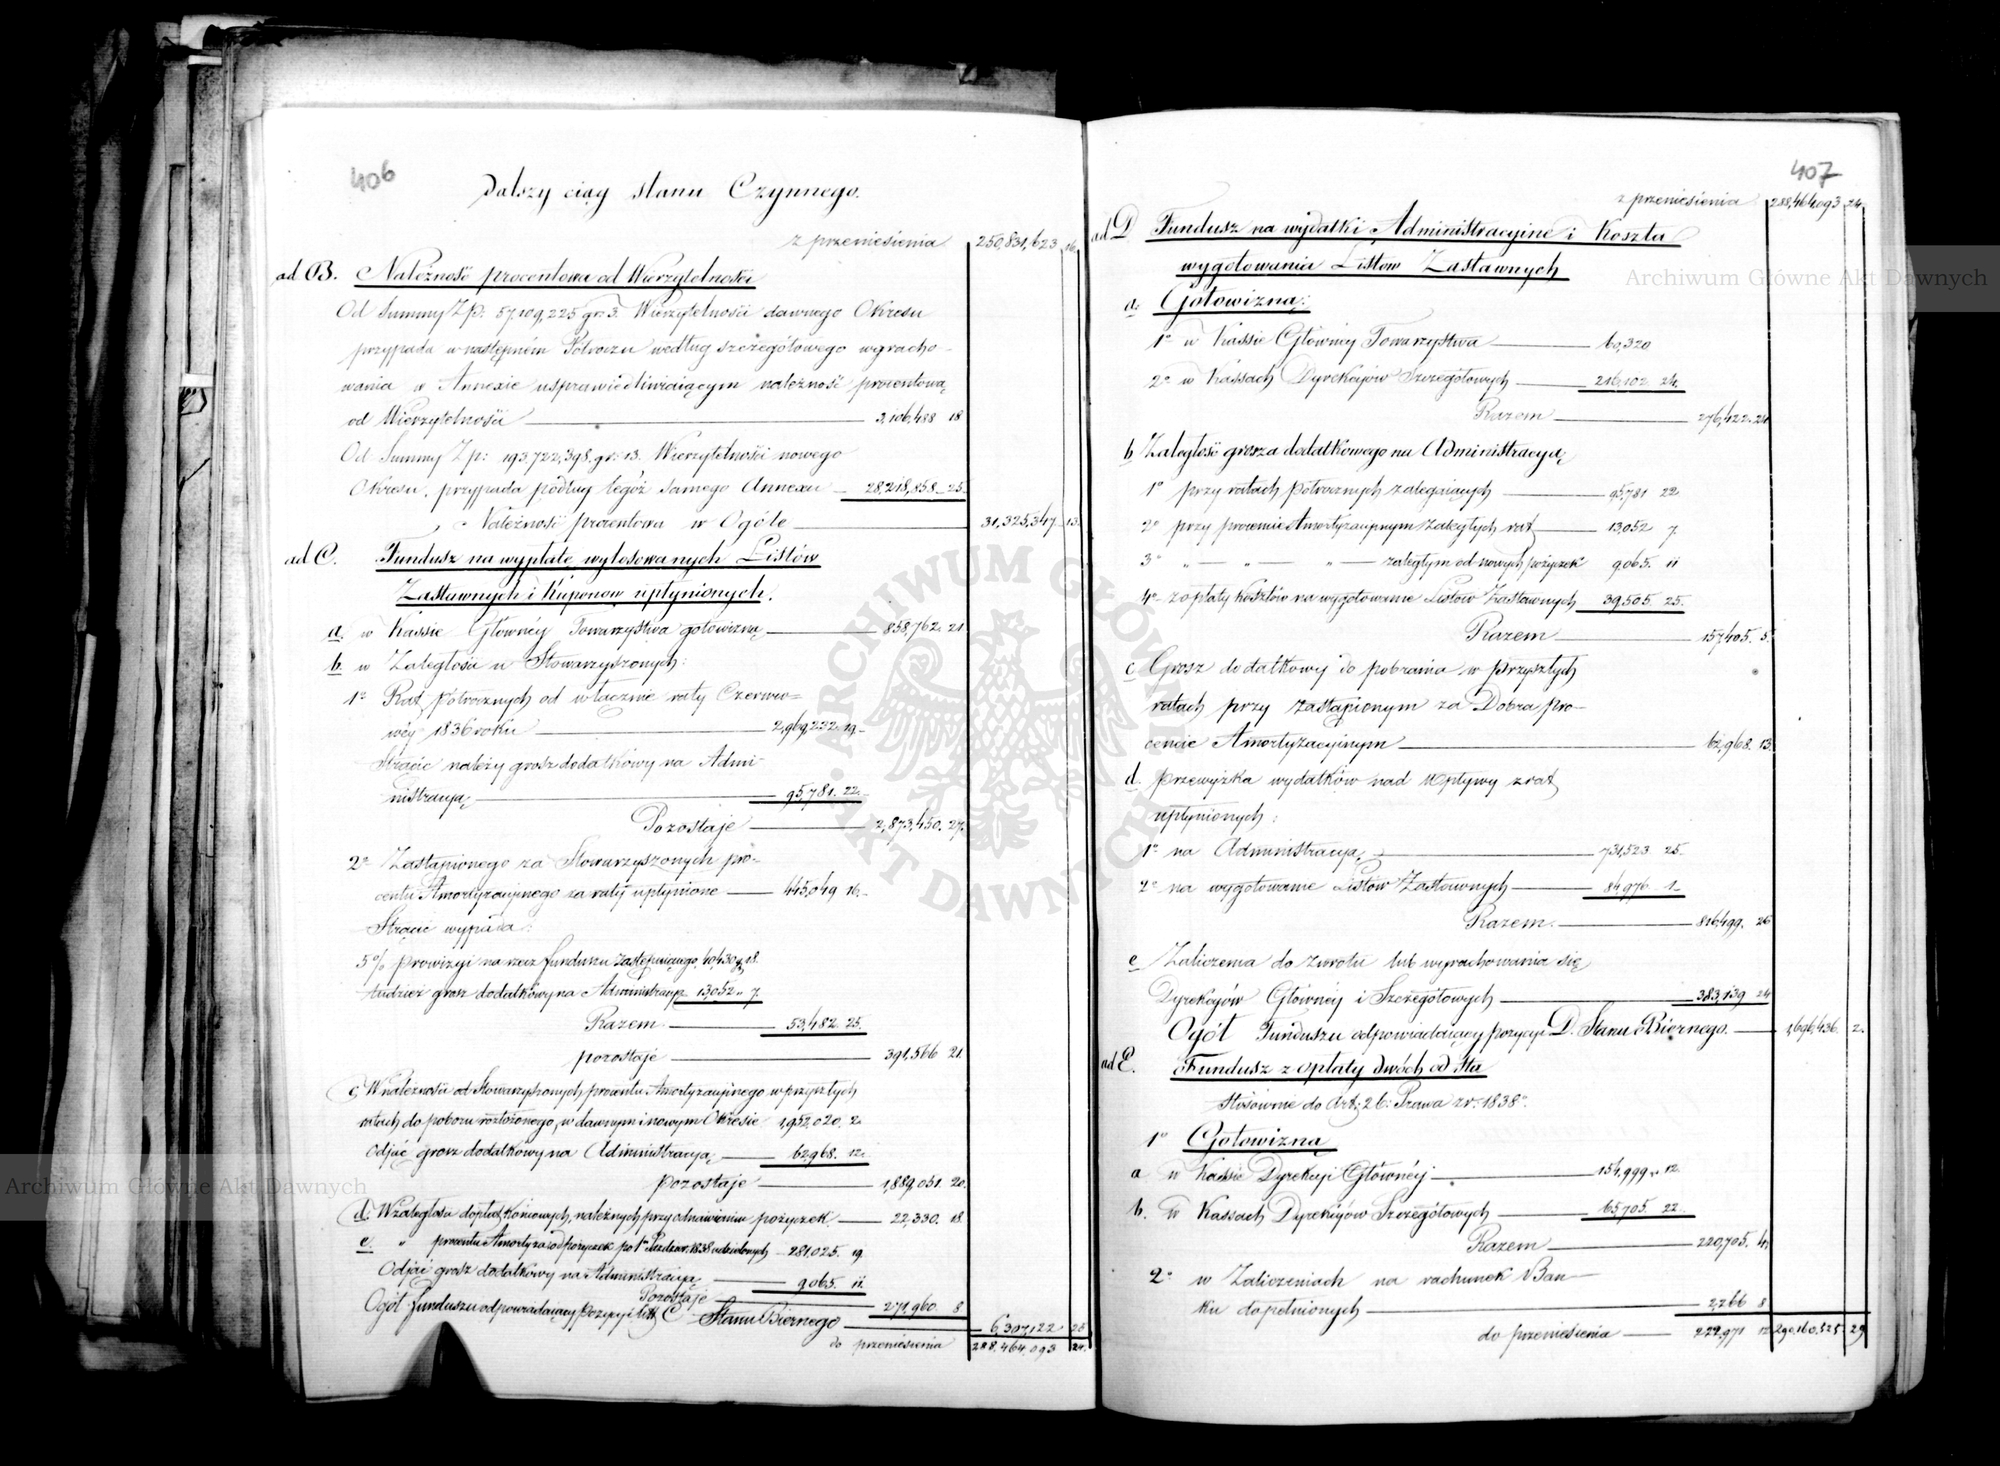 406
Dalszy ciąg stanu Czynnego.
z przeniesienia 250,831,623 16.
ad B. Należność procentowa od Wierzytelności
Od Summy Zp: 57,109,225 gr: 3. Wierzytelności dawnego Okresu
przypada w następném Półroczu według szczegółowego wyracho-
wania w Annexie usprawiedliwiaiącym należność procentową
od Wierzytelności 3,106,488 18
Od Summy Zp: 193,722,398, gr: 13. Wierzytelności nowego
Okresu, przypada podług tegóż samego Annexu 28,218,858 25.
Należność procentowa w Ogóle 31,325,347 13.
ad C. Fundusz na wypłatę wylosowanych Listów
Zastawnych i Kuponów upłynionych.
a. w Kassie Główney Towarzystwa gotowizną 858,762. 21.
b. w Zaległości u Stowarzyszonych:
1o Rat półrocznych od włącznie raty Czerwco=
wéy 1836 roku 2,969,232 19.
Strącić należy grosz dodatkówy na Admi-
nistracyą 95,781. 22.
Pozostaje 2,873,450. 27.
2o Zastąpionego za Stowarzyszonych pro-
centu Amortyzacyjnego za raty upłynione 445,049 16.
Strącić wypada:
5% Prowizyi na rzecz funduszu zastępuiącego 40,430 gr 18.
tudzież grosz dodatkówy na Administracyą 13,052 " 7.
Razem 53,482. 25.
pozostaje 391,566 21.
c. W należności od Stowarzyszonych procentu Amortyzacyjnego w przyszłych
ratach do poboru rozłożonego, w dawnym i nowym Okresie 1,952,020. 2.
Odjąć grosz dodatkowy na Administracyą 62,968. 12.
pozostaje 1,889,051. 20.
d. W zaległości dopłat końcowych, należnych przy odnawianiu pożyczek 22,330. 18.
e. " procentu Amortyza: od pożyczek po 1m Pazdzier. 1838 udzielonych 281,025. 19
Odjąć grosz dodatkowy na Administracyą 9,065. 11
Pozostaje 271,960. 8
Ogół funduszu odpowiadaiący pozycyi litt. C Stanu Biernego 6,307,122 25
do przeniesienia 288,464,093 24.
407
z przeniesienia 288,464,093 24.
ad D Fundusz na wydatki Administracyine i Koszta
wygotowania Listów Zastawnych
a: Gotowizną:
1o w Kassie Główney Towarzystwa 60,320
2o w Kassach Dyrekcyów Szczegółowych 216,102 24.
Razem 276,422. 24.
b Zaległość grosza dodatkowego na Administracyą
1o przy ratach półrocznych zalegaiących 95,781 22
2o przy procencie Amortyzacyinym zaległych rat 13,052 7.
3o " " " zaległym od nowych pożyczek 9,065. 11
4o z opłaty kosztów na wygotowanie Listów Zastawnych 39,505. 25.
Razem 157,405. 5.
c Grosz dodatkowy do pobrania w przyszłych
ratach przy zastąpionym za Dobra pro-
cencie Amortyzacyinym 62,968. 13.
d. przewyżka wydatków nad wpływy z rat
upłynionych:
1o na Administracyą 731,523 25.
2o na wygotowanie Listów Zastawnych 84,976. 1
Razem 816,499. 26
e Zaliczenia do zwrotu lub wyrachowania się
Dyrekcyów Główney i Szczegółowych 383,139 24
Ogół Funduszu odpowiadaiący pozycyi D. Stanu Biernego. 1,696,436. 2.
ad E. Fundusz z opłaty dwóch od sta
Stosownie do Art: 26: Prawa z r: 1838o.
1o Gotowizną
a w Kassie Dyrekcyi Główney 154,999. 12.
b. w Kassach Dyrekcyów Szczegółowych 65,705. 22.
Razem 220,705. 4.
2o w Zaliczeniach na rachunek Ban-
ku dopełnionych 2,266 8
do przeniesienia 222,971 12 290,160,525. 29
Archiwum Główne Akt Dawnych
Archiwum Główne Akt Dawnych
ARCHIWUM GŁÓWNE AKT DAWNYCH